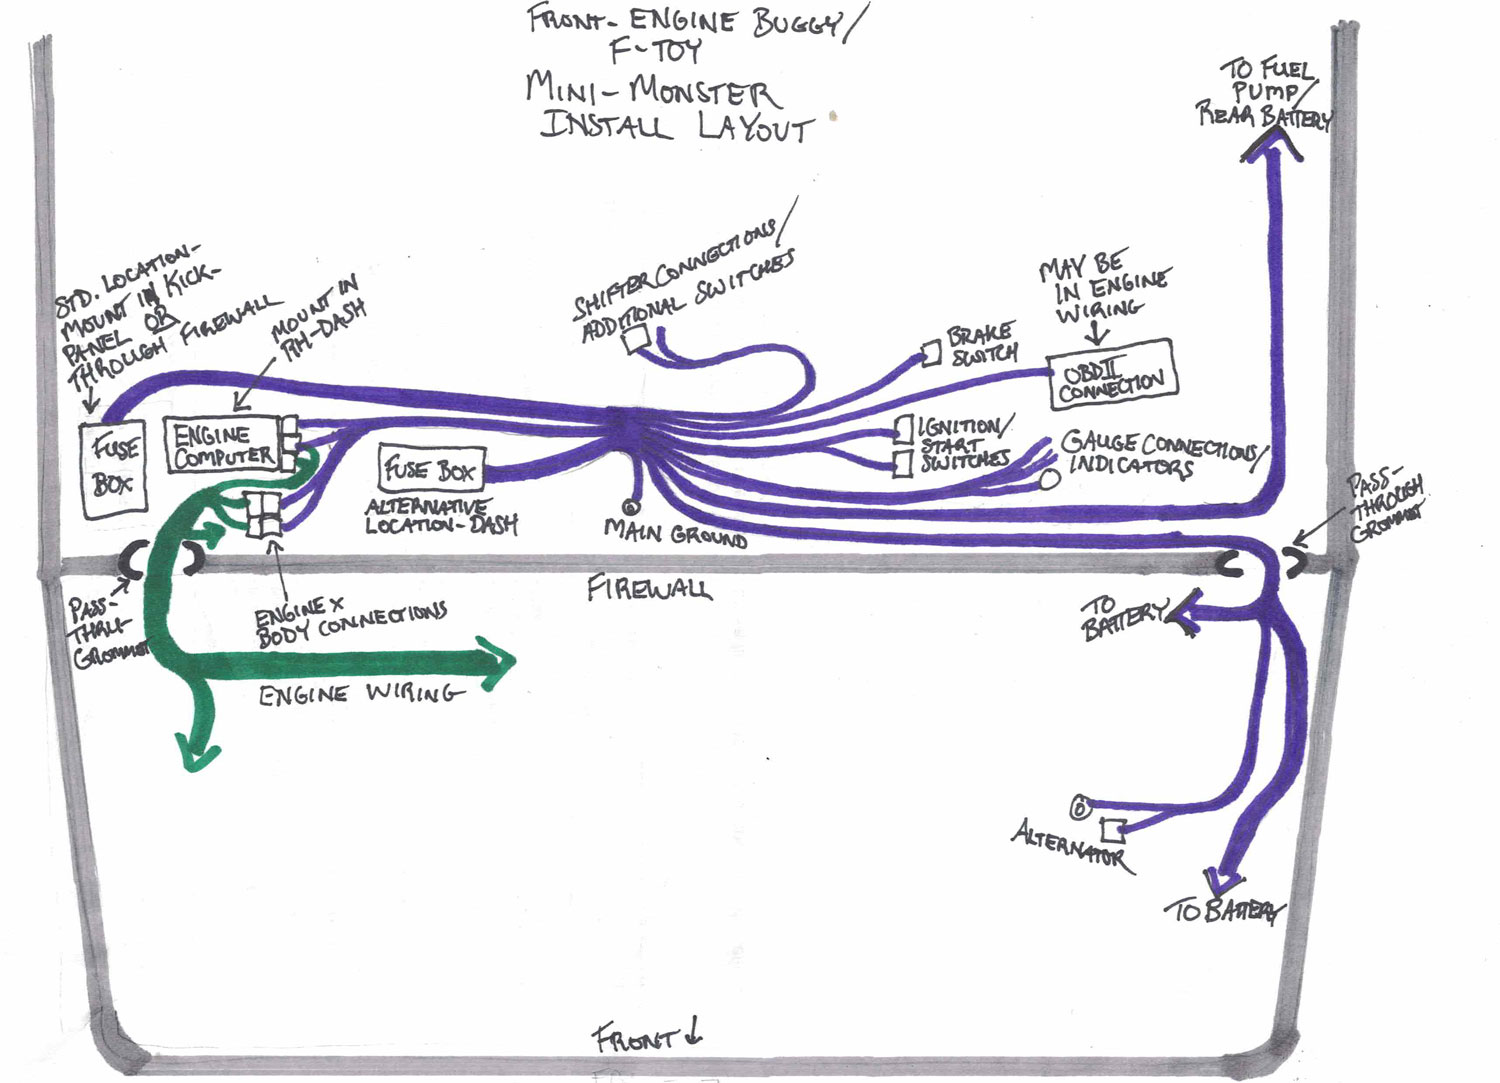 FRONT-ENGINE BUGGY/
F-TOY
MINI-MONSTER
INSTALL LAYOUT
TO FUEL
PUMP/
REAR BATTERY
STD. LOCATION-
MOUNT IN KICK-
PANEL OR
THROUGH FIREWALL
MOUNT IN
RH-DASH
SHIFTER CONNECTIONS/
ADDITIONAL SWITCHES
MAY BE
IN ENGINE
WIRING
BRAKE
SWITCH
OBDII
CONNECTION
FUSE
BOX
ENGINE
COMPUTER
FUSE BOX
ALTERNATIVE
LOCATION-DASH
MAIN GROUND
IGNITION/
START
SWITCHES
GAUGE CONNECTIONS/
INDICATORS
PASS-
THROUGH
GROMMET
FIREWALL
PASS-
THRU
GROMMET
ENGINE X
BODY CONNECTIONS
ENGINE WIRING
TO
BATTERY
ALTERNATOR
TO BATTERY
FRONT